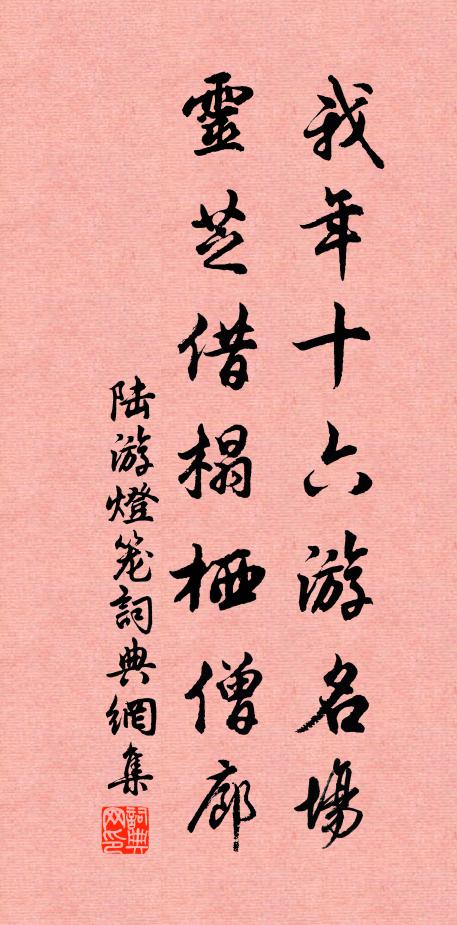 我年十六游名場
靈芝借榻栖僧廊
陆游燈笼詞典網集
詞典网印